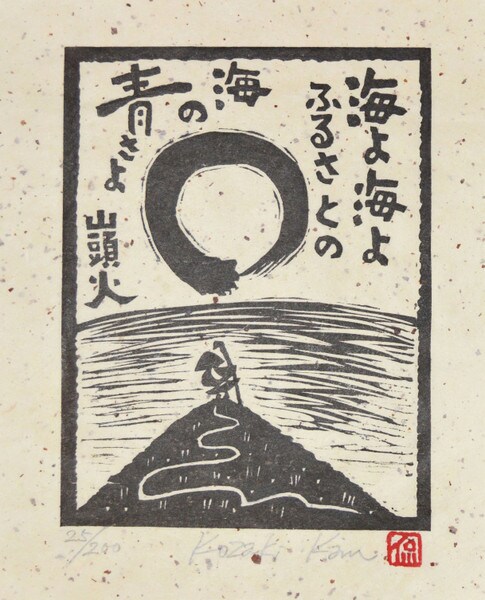 海よ海よ
ふるさとの
海の
青さよ
山頭火
25/200 Kozaki Kan
侃